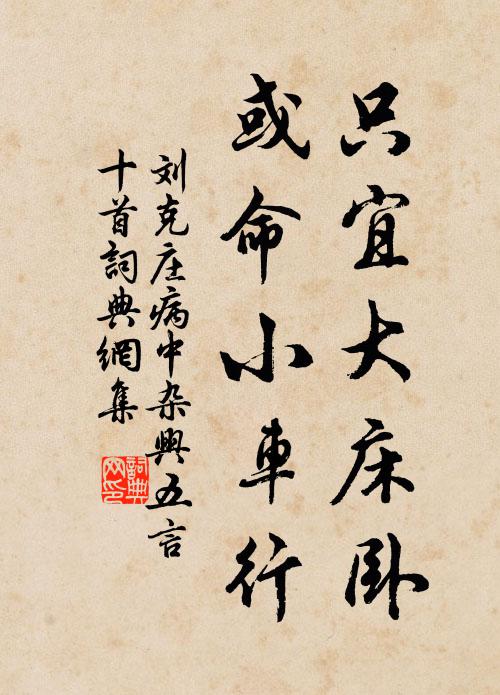 只宜大床卧
或命小車行
刘克庄病中杂興五言
十首詞典網集
詞典網印